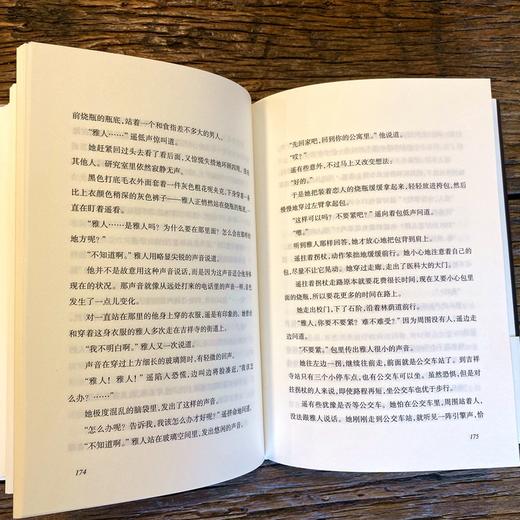 前烧瓶的瓶底，站着一个和食指差不多大的男人。
“雅人……”遥低声惊叫道。
她赶紧回过头去看了看后面，又惊慌失措地环顾四周，没有
其他人。研究室里依然寂静无声。
黑色打底毛衣外面套着一件灰色粗花呢夹克，下身穿着一条
比上衣颜色稍深的灰色裤子——雅人正悄然站在烧瓶的瓶底，一
直在盯着遥看。
“雅人……是雅人吗？为什么要在那里面？怎么会在那样的
地方呢？”
“不知道啊。”雅人用略显尖锐的声音说道。
他并不是故意用这种声音说话，而是因为这声音适合他身体
现在的状况。那声音就像从远处打来的电话里的声音一样，音色
发生了一点儿变化。
对一直站在那里的他身上穿的衣服，遥是有印象的。她曾经
和穿着这身衣服的雅人多次走在吉祥寺的街道上。
“我不明白啊。”雅人又一次说道。
声音在穿过上方细长的玻璃筒时，有轻微的回声。
“雅人！雅人！”遥陷入恐慌，边叫边将脸凑近，“我该怎
么办？……”
她极度混乱的脑袋里，发出了这样的声音。
“怎么办呢？告诉我，我该怎么办才好呢？”遥拼命地问道。
“不知道啊。”雅人站在玻璃空间里，发出悠闲的声音。
174
“先回家吧，回到你的公寓里。”他说道。
“哎？”
遥有些意外，不过马上又改变想法：
“好的。”
于是她把装着恋人的烧瓶缓缓拿起来，轻轻放进挎包，然后
慢慢地穿过左臂拿起包。
“这样可以吗？不要紧吧？”遥向着包低声问道。
“嗯。”
听到雅人那样回答，她才放心地把包背到肩上。
遥拄着拐杖，动作笨拙地缓缓前行。她小心地注意着自己的
包，尽量不让它晃动。她穿过走廊，走出了医科大的大门。
遥拄着拐杖走路原本就要花费很长时间，现在又要小心包里
面的烧瓶，所以需要花更多的时间在路上。
她走出校门，下了石阶，沿着林荫道前行。
“雅人，你要不要紧？难不难受？”因为周围没有人，遥边走
边问道。
“不要紧。”包里传出雅人很小的声音。
她往左边一拐，继续往前走，前面就是公交车站了。到吉祥
寺站只有三个小停车点，也可以坐公交车。虽然恐惧，但是对
拄拐杖的人来说，即使路程再短，坐公交车也优于步行。
遥有些犹豫是否等公交车。她怕在公交车里，周围站着人，
没法跟雅人说话。她刚刚走到公交车站，就听见一阵引擎声，恰
175